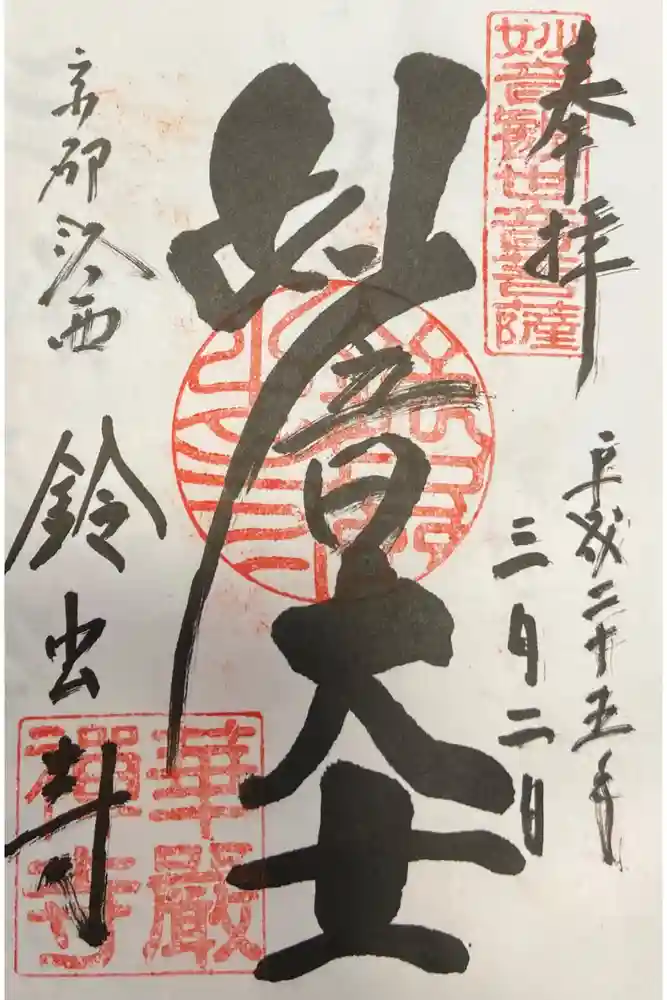 奉拝
妙音觀世音菩薩
平成二十五年
三月二日
妙音大士
京都洛西
鈴虫寺
華嚴
禪寺